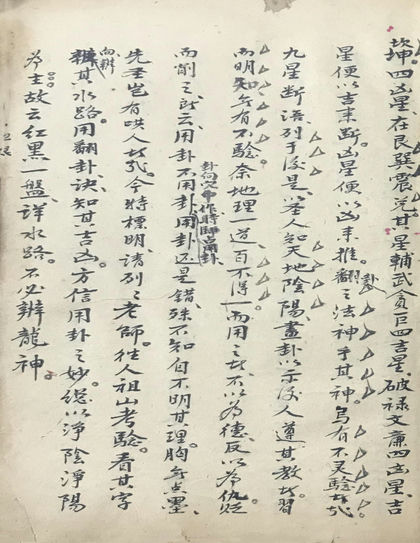 坎坤四凶星在艮巽震兌其星輔武貪巨四吉星破祿文廉四凶星吉
星便以吉來断凶星便以凶来推翻卦之法神乎其神焉有不灵驗
九星断語列于後是人知天地陰陽畫卦以示後人遵其教習
而明知无有不驗奈地理一道百不得一而用之不以為德反以為仇
而謂之云用卦不用卦用卦還是錯殊不知自不明其理胸无点墨
卦向作時師用卦
先圣豈有哄人今特標明諸列之老師往人祖山考驗看其字
向辨其水路用翻卦訣知其吉凶方信用卦之妙總以淨陰淨陽
為主故云紅黑一盤詳水路不必辨龍神